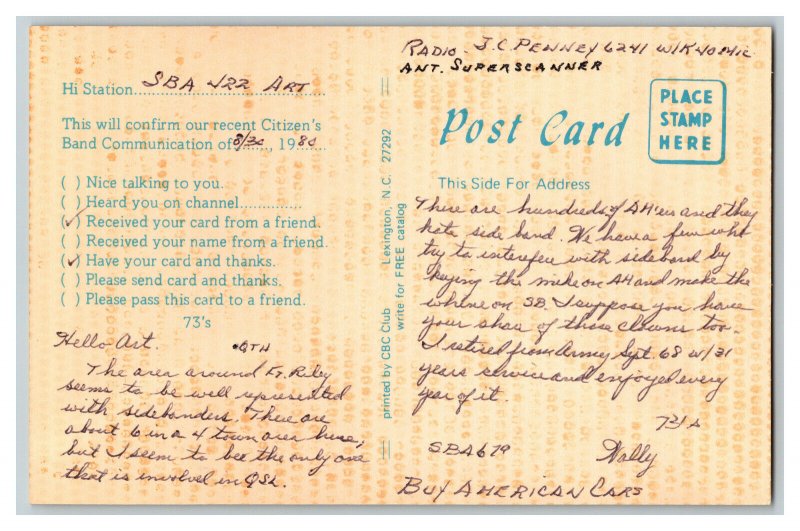 Hi Station SBA 422 Art
This will confirm our recent Citizen's
Band Communication of 8/30, 1980
( ) Nice talking to you.
( ) Heard you on channel..............
(✓) Received your card from a friend.
( ) Received your name from a friend.
(✓) Have your card and thanks.
( ) Please send card and thanks.
( ) Please pass this card to a friend.
73's
Hello Art. QTH
The area around Ft. Riley
seems to be well represented
with sidebanders. There are
about 6 in a 4 town area here,
but I seem to be the only one
that is involved in QSL.
printed by CBC Club Lexington, N.C. 27292
write for FREE catalog
Radio - J.C. Penney 6241 w/K40 Mic
Ant. Superscanner
Post Card
PLACE
STAMP
HERE
This Side For Address
There are hundreds of AM'ers and they
hate side band. We have a few who
try to interefere with sideband by
keying the mike on AM and make the
whine on SB. I suppose you have
your share of those clowns too.
I retired from Army Sept. 68 w/21
years service and enjoyed every
year of it.
73's
SBA 679 Wally
Buy American Cars